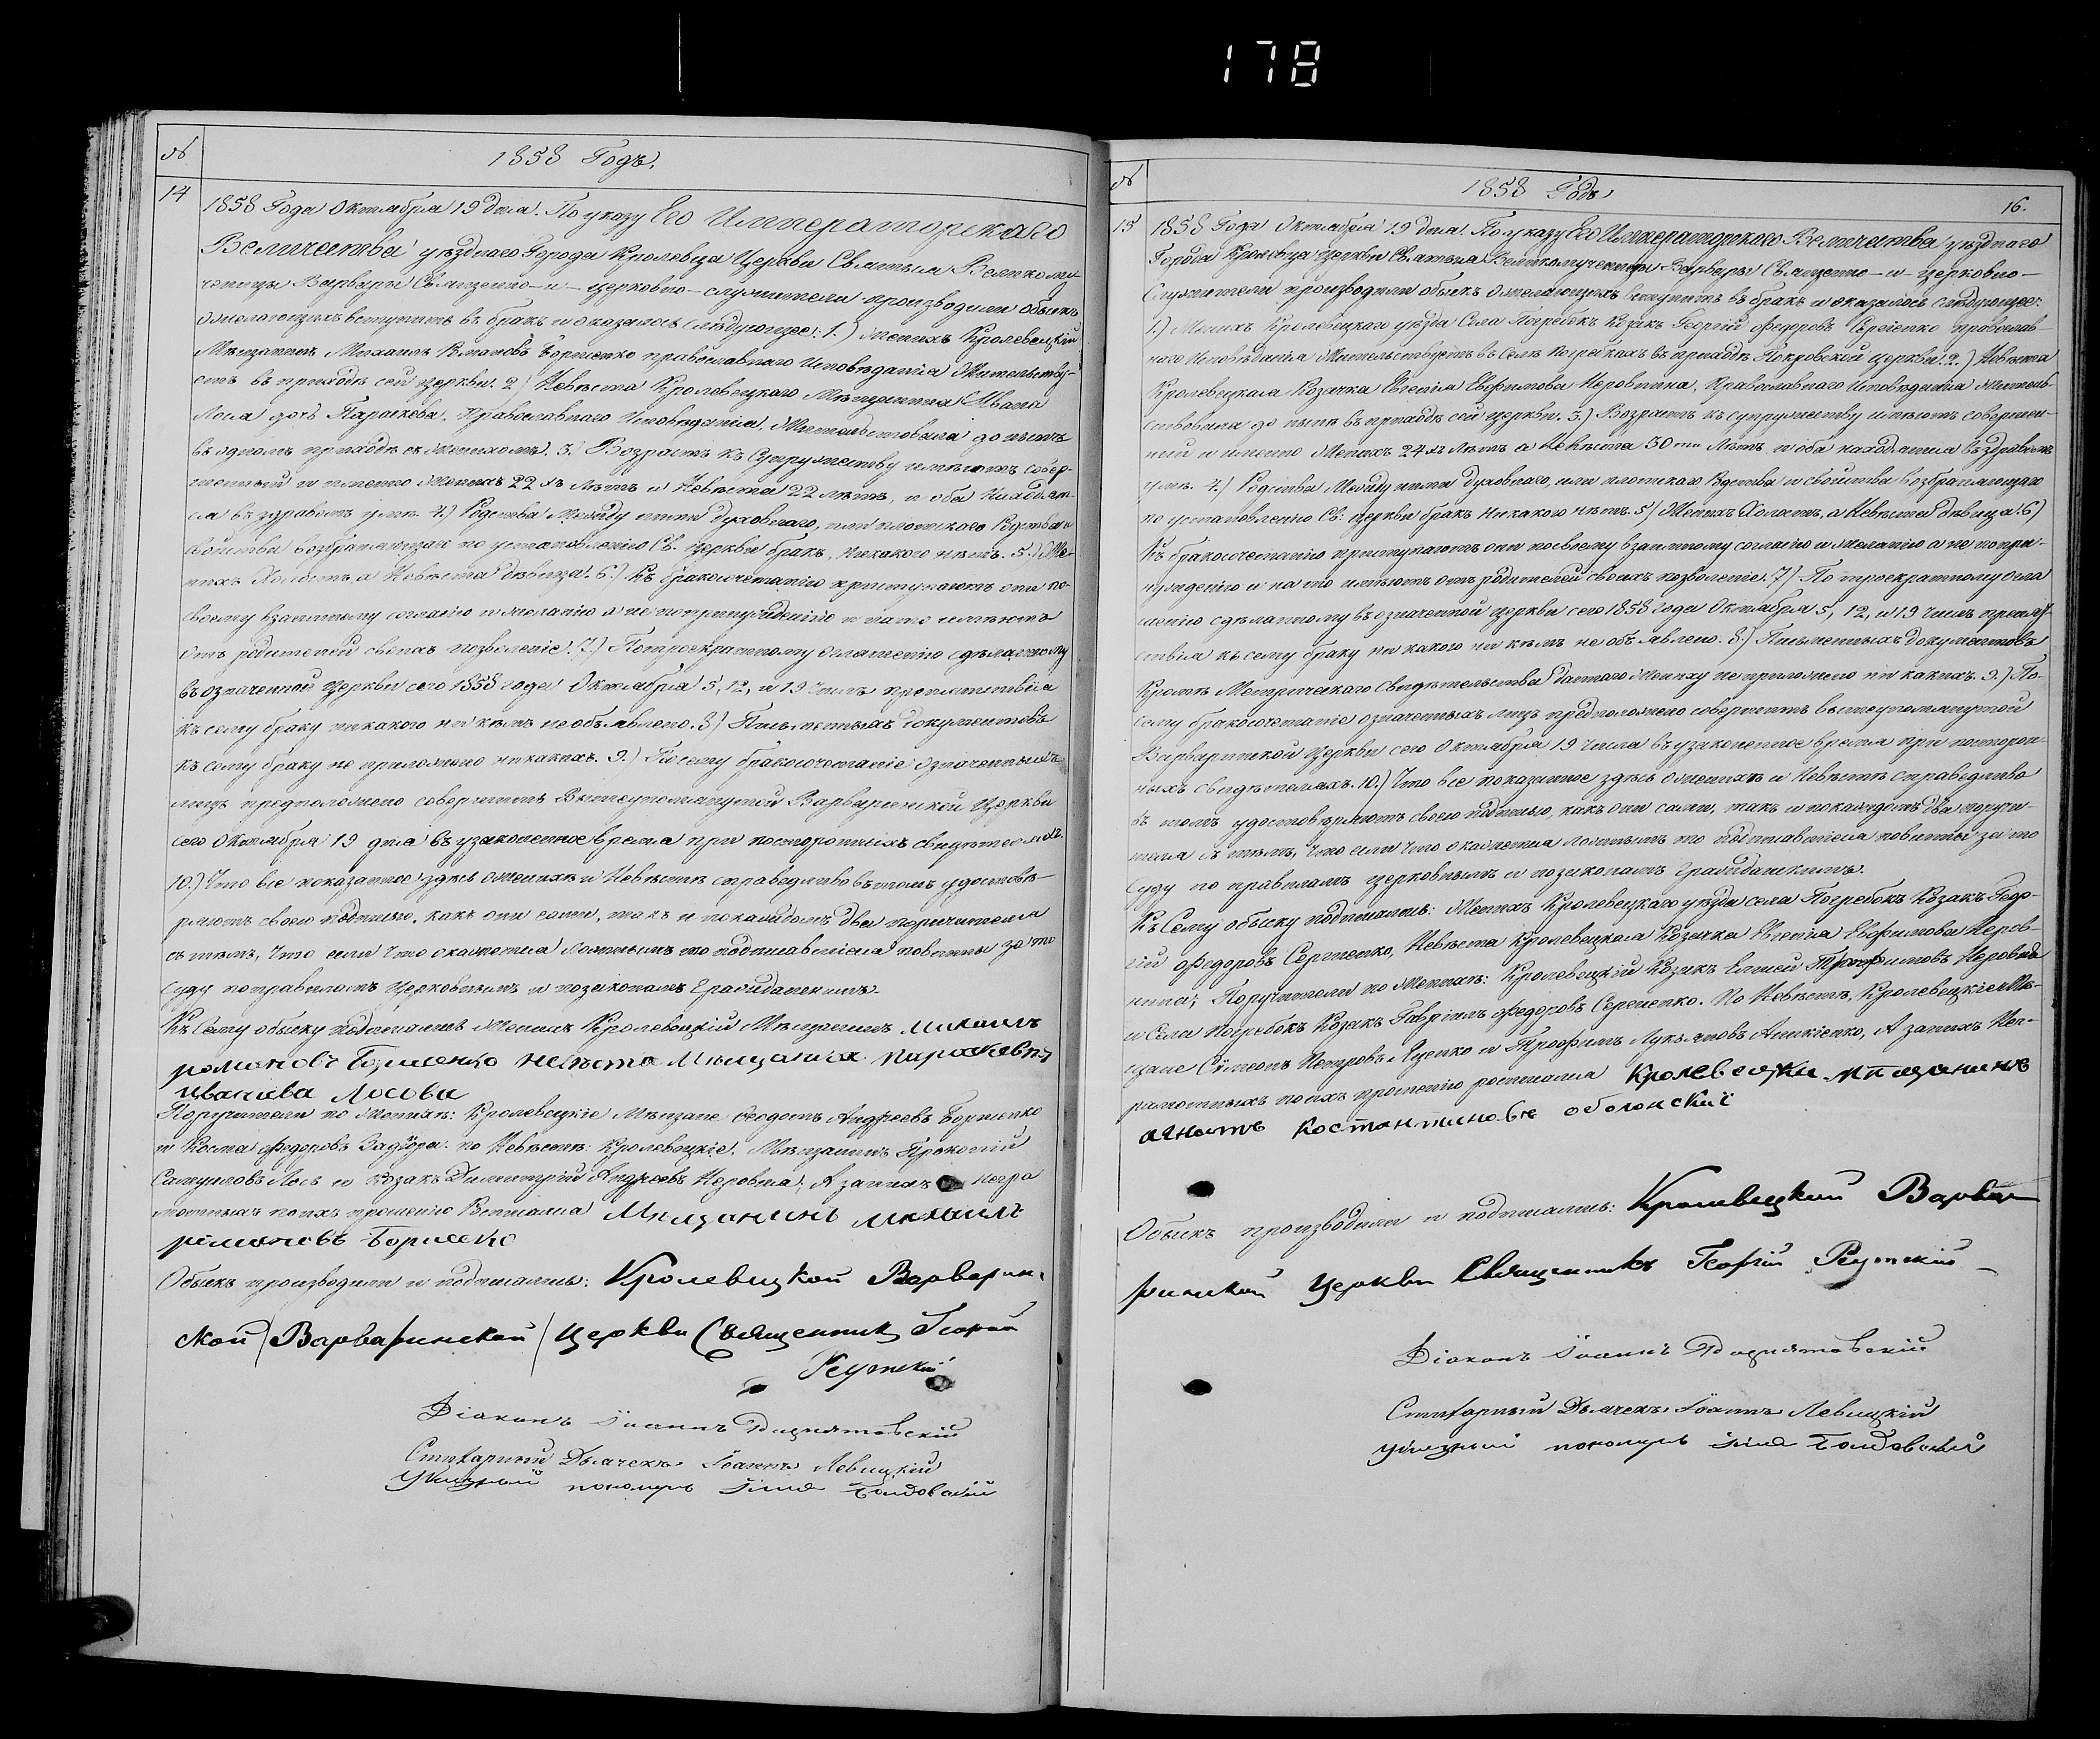 178
№
1858 Годъ.
14
1858 Года Октября 19 дня. По указу Его Императорскаго
Величества уѣзднаго Города Кролевца Церкви Святыя Великому-
ченицы Варвары Священно-и-церковно-служители производили обыскъ
о желающихъ вступить въ бракъ и оказалось слѣдующее: 1.) Женихъ Кролевецкій
Мѣщанинъ Михаилъ Романовъ Борщенко православнаго Исповѣданія Жительству-
етъ въ приходѣ сей церкви. 2.) Невѣста Кролевецкаго Мѣщанина Ивана
Лося дочь Параскева, Православнаго Исповѣданія, Жительствовала до нынѣ
въ одномъ приходѣ съ женихомъ. 3.) Возрастъ къ Супружеству имѣютъ совер-
шенный и именно Женихъ 22 хъ лѣтъ и Невѣста 22 лѣтъ, и оба находят-
ся въ здравомъ умѣ. 4.) Родства между ними духовнаго, или плотскаго Родства и
свойства возбраняющаго по установленію Св. Церкви бракъ, никакого нѣтъ. 5.) Же-
нихъ Холостъ, а Невѣста дѣвица. 6.) Къ бракосочетанію приступаютъ они по
своему взаимному согласію и желанію а не по принужденію и на то имѣютъ
отъ родителей своихъ позволеніе. 7.) По троекратному оглашенію сдѣланному
въ означенной Церкви сего 1858 года Октября 5, 12, и 19 числъ препятствія
къ сему браку никакого ни кѣмъ не объявлено. 8.) Письменныхъ документовъ
къ сему браку не приложено никакихъ. 9.) По сему бракосочетаніе означенныхъ
лицъ предположено совершить Вышеупомянутой Варваринской Церкви
сего Октября 19 дня въ узаконенное время при постороннихъ свидѣтеляхъ.
10.) Что все показанное здѣсь о женихѣ и Невѣстѣ справедливо въ томъ удостовѣ-
ряютъ своею подписью, какъ они сами, такъ и по каждомъ два поручителя
съ тѣмъ, что если что окажется ложнымъ то подписавшіеся повинны за то
суду по правиламъ Церковнымъ и по законамъ Гражданскимъ.
Къ Сему обыску подписались Женихъ Кролевецкій Мѣщанинъ Михаилъ
романовъ Борщенко невѣста Мѣщанка параскевия
иванова Лосова
Поручители по Женихѣ: Кролевецкіе Мѣщане Феодотъ Андреевъ Борщенко
и Косма Федоровъ Задѣра: по Невѣстѣ: Кролевецкіе. Мѣщанинъ Прокопій
Самуиловъ Лось и Козакъ Димитрій Андреевъ Неровня, А за нихъ негра
мотныхъ по ихъ прошенію Росписался Мещанинъ михаилъ
романовъ Борщеко
Обыскъ производили и подписались: Кролевецкой Варварин-
ской /Варваринской/ церкви Священникъ Георгій
Реутскій
Діаконъ Іоаннъ
Стихарный Дьячекъ Іоаннъ Левицкій
пономарь
№
1858 Годъ
16.
15
1858 Года Октября 19 дня. По указу Его Императорскаго Величества уѣзднаго
Города Кролевца Церкви Святыя Великомученицы Варвары Священно-и-церковно-
Служители производили обыскъ о желающихъ вступить въ бракъ и оказалось слѣдующее:
1.) Женихъ Кролевецкаго уѣзда Села Погребокъ Козакъ Георгій Федоровъ Сергіенко православ-
наго Исповѣданія Жительствуетъ въ Селѣ Погребкахъ въ приходѣ Покровской церкви. 2.) Невѣста
Кролевецкая Козачка Евгенія Евфимова Неровнина, Православнаго Исповѣданія Житель-
ствовала до нынѣ въ приходѣ сей церкви. 3.) Возрастъ къ супружеству имѣютъ совершен-
ный и именно Женихъ 24 хъ лѣтъ а Невѣста 30 ти лѣтъ и оба находятся въ здравомъ
умѣ. 4.) Родства Между ними духовнаго, или плотскаго Родства и свойства возбраняющаго
по установленію Св: Церкви бракъ никакого нѣтъ. 5.) Женихъ Холостъ, а Невѣста дѣвица. 6.)
Къ бракосочетанію приступаютъ они по своему взаимному согласію и желанію а не по при-
нужденію и на то имѣютъ отъ родителей своихъ позволеніе. 7.) По троекратному огла
шенію сдѣланному въ означенной Церкви сего 1858 года Октября 5, 12, и 19 числъ препят-
ствія къ сему браку никакого ни кѣмъ не объявлено. 8.) Письменныхъ документовъ
Кромѣ Метрическаго Свидѣтельства даннаго Жениху не приложено ни какихъ. 9.) По-
сему бракосочетаніе означенныхъ лицъ предположено совершить вышеупомянутой
Варваринской Церкви сего Октября 19 числа въ узаконенное время при посторон-
ныхъ свидѣтеляхъ. 10.) Что все показанное здѣсь о женихѣ и Невѣстѣ справедливо
въ томъ удостовѣряютъ своею подписью, какъ они сами, такъ и по каждомъ два поручи-
теля съ тѣмъ, что если что окажется ложнымъ то подписавшіеся повинны за то
Суду по правиламъ церковнымъ и по законамъ Гражданскимъ.
Къ Сему обыску подписались: Женихъ Кролевецкаго уѣзда села Погребокъ Козакъ Геор-
гій Федоровъ Сергиенко, Невѣста Кролевецкая Козачка Евгенія Евфимова Неров-
нина; Поручители по Женихѣ: Кролевецкій Козакъ Елисей Трофимовъ Неровня
и Села Погребокъ Козакъ Гавріилъ Федоровъ Сергиенко. По Невѣстѣ, Кролевецкіе Мѣ-
щане Сѵмеонъ Петровъ Яценко и Трофимъ Лукьяновъ Аникіенко, А за нихъ Нег-
рамотныхъ по ихъ прошенію росписался Кролевецки мѣщанинъ
игнатъ костантиновъ оболонскиї
Обыскъ производили и подписались: Кролевецкой Варва-
ринской Церкви Священникъ Георгій Реутскій
Діаконъ Іоаннъ
Стихарный Дьячекъ Іоаннъ Левицкій
пономарь